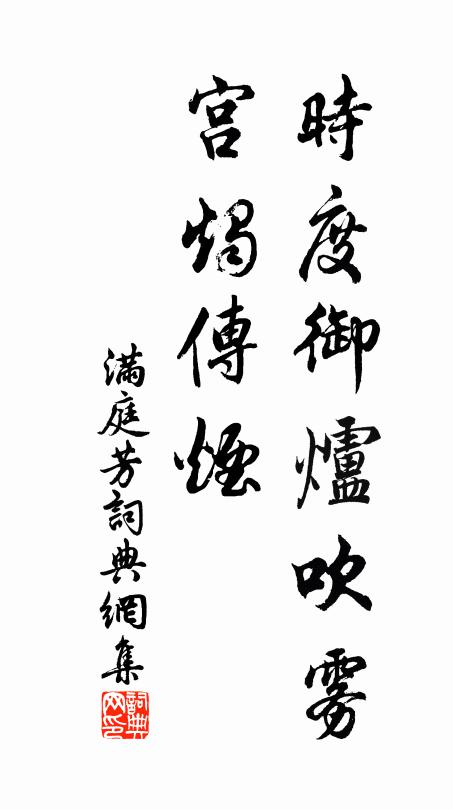 時度御爐吹霧
宮燭傳煙
滿庭芳詞典網集
詞典網印